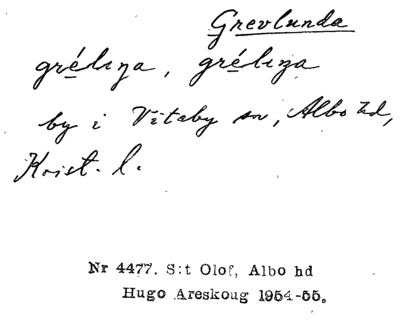 Grevlunda
grélıŋa, grélıŋa
by i Vitaby sn, Albo hd,
Krist. l.
Nr 4477. S:t Olof, Albo hd
Hugo Areskoug 1954-55.